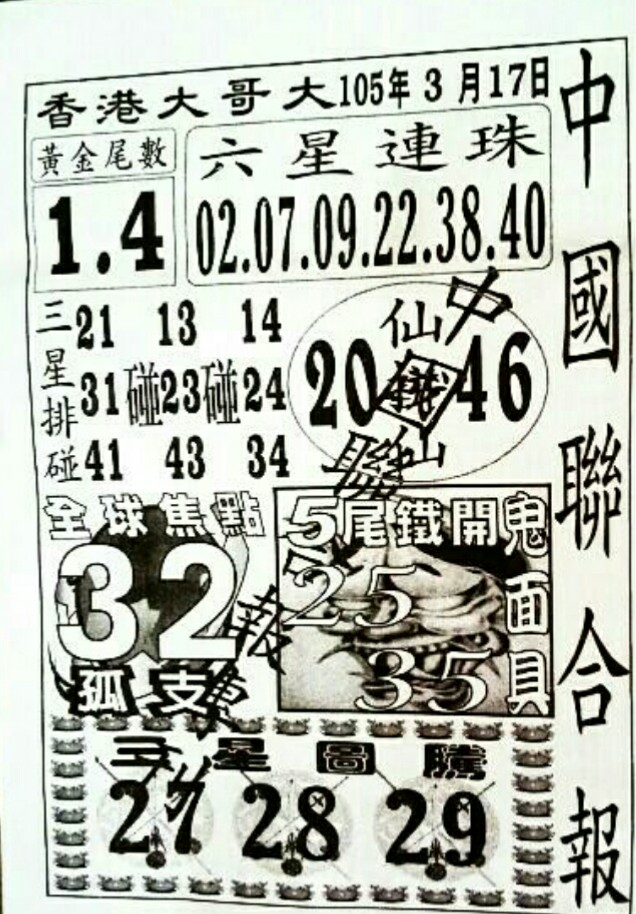 香港大哥大105年3月17日
黃金尾數
1.4
六星連珠
02.07.09.22.38.40
三星排碰
21 13 14
31碰23碰24
41 43 34
仙
20 46
仙
全球焦點
32
孤支
5尾鐵開
鬼面具
25
35
三星圖騰
27 28 29
中國聯合報
中國聯報